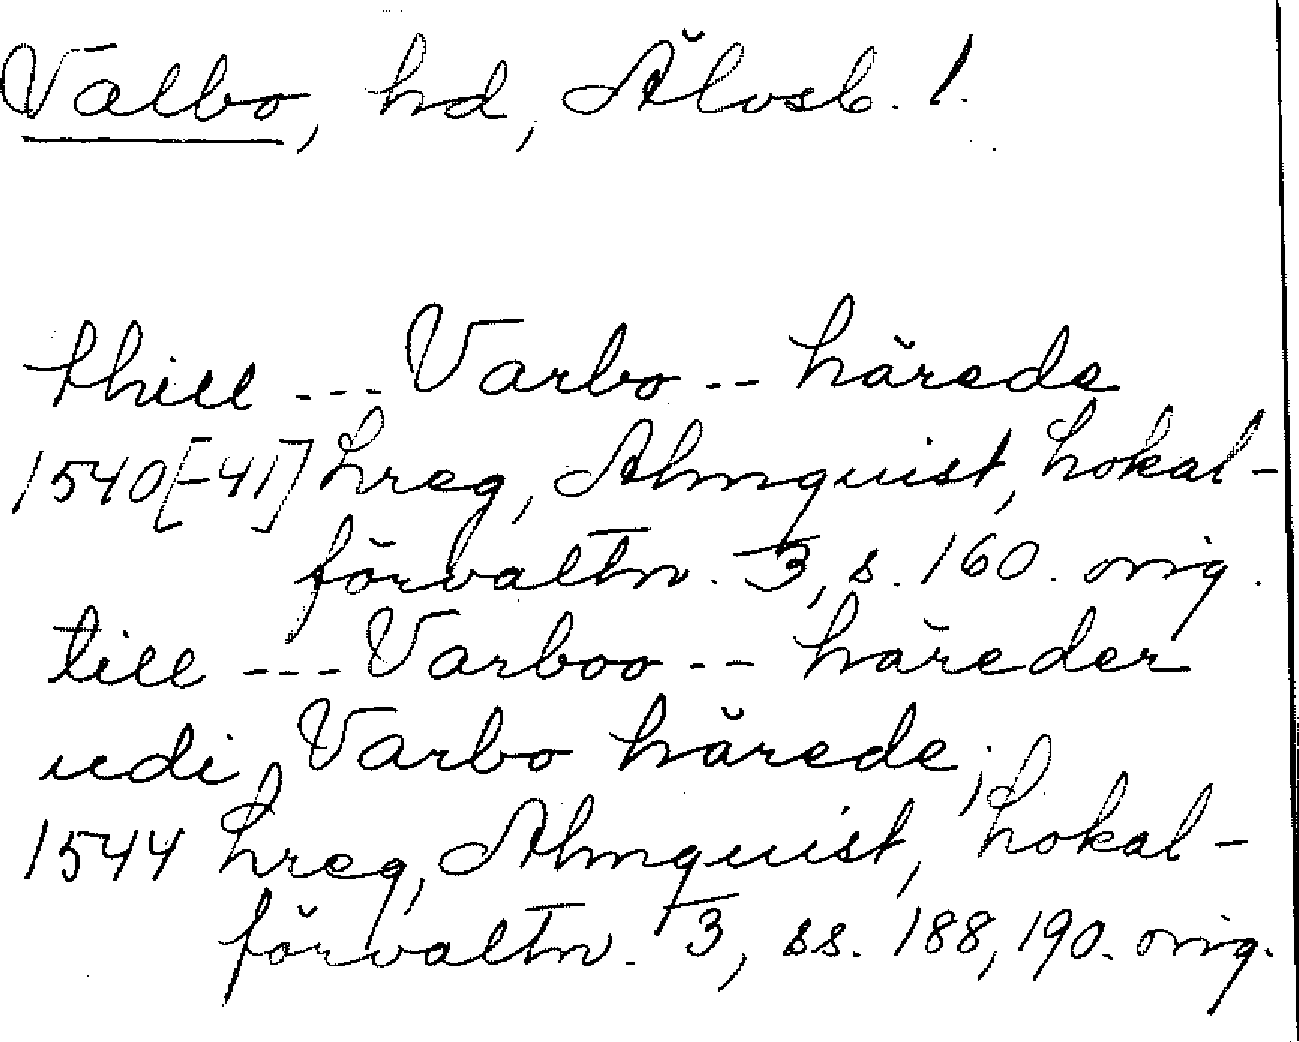 Valbo, hd, Älvsb. l.
thill --- Varbo -- härede
1540[-41] Lreg, Almquist, Lokal-
förvaltn. 3, s. 160. orig.
till --- Varboo -- häreder
udi Varbo härede;
1544 Lreg, Almquist, Lokal-
förvaltn. 3, ss. 188, 190. orig.